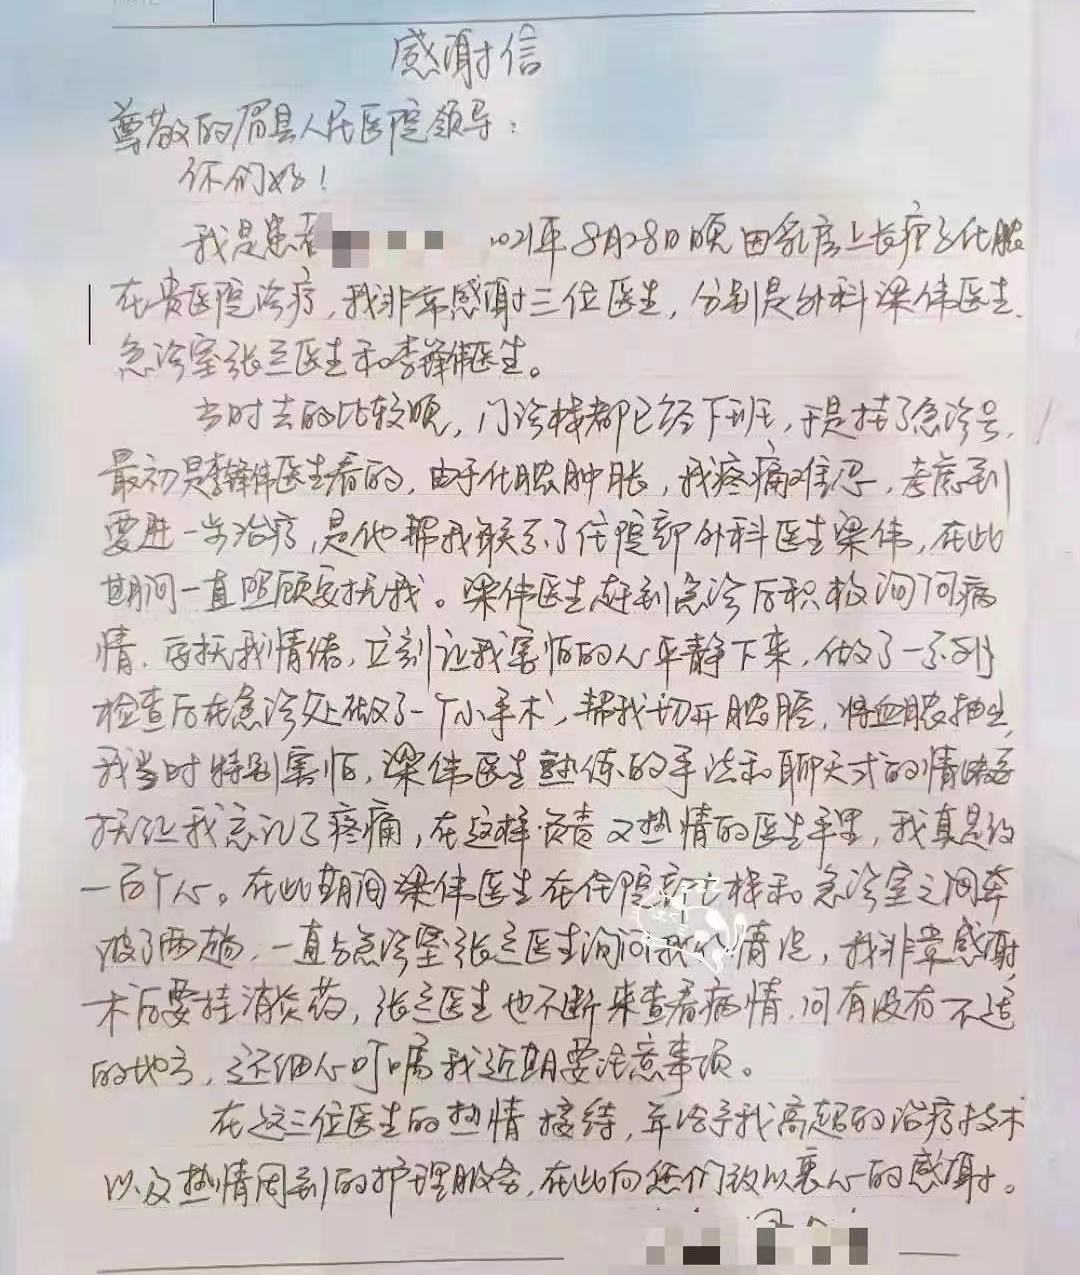 感谢信
尊敬的眉县人民医院领导：
你们好！
我是患者 2021年8月28日晚因乳房上长疖子化脓
在贵医院诊疗，我非常感谢三位医生，分别是外科梁伟医生、
急诊室张立医生和李锋伟医生。
当时去的比较晚，门诊楼都已经下班，于是挂了急诊号，
最初是李锋伟医生看的，由于化脓肿胀，我疼痛难忍，考虑到
要进一步治疗，是他帮我联系了住院部外科医生梁伟，在此
期间一直照顾安抚我。梁伟医生赶到急诊后积极询问病
情，安抚我情绪，立刻让我害怕的心平静下来，做了一系列
检查后在急诊处做了一个小手术，帮我切开脓腔，将血脓抽出，
我当时特别害怕，梁伟医生熟练的手法和聊天式的情绪安
抚让我忘记了疼痛，在这样负责又热情的医生手里，我真是放
一百个心。在此期间梁伟医生在住院部楼和急诊室之间奔
波了两趟，一直与急诊室张立医生询问我的情况，我非常感谢，
术后要挂消炎药，张立医生也不断来查看病情，问有没有不适
的地方，还细心叮嘱我近期要注意事项。
在这三位医生的热情接待，并给予我高超的治疗技术
以及热情周到的护理服务，在此向您们致以衷心的感谢。